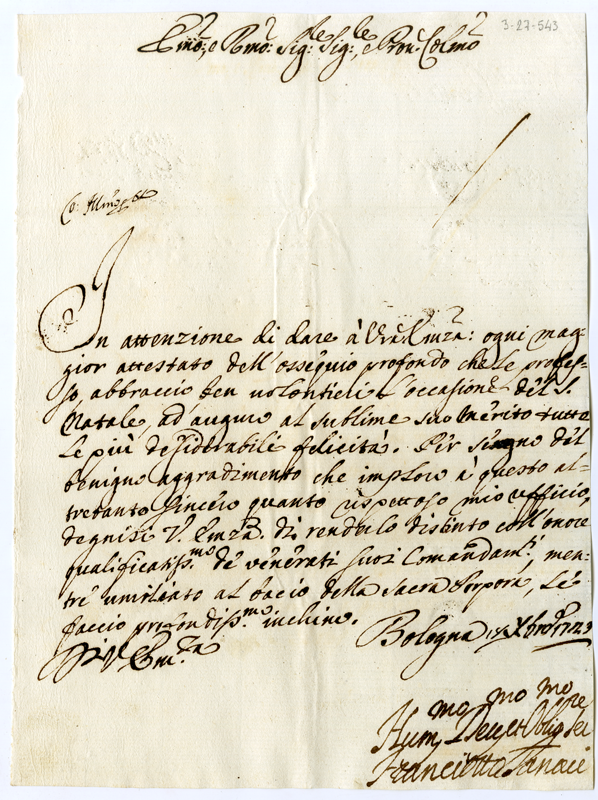 3-27-543
Emo:, e Rmo: Sig:re Sig:re, e Pron: Colmo
In attenzione di dare à Vra Emza: ogni mag-
gior attestato dell'ossequio profondo che le profes-
so, abbraccio ben volontieri l'occasione del S.
Natale, ad auguro al sublime suo Merito tutte
le più desiderabili felicità. Per segno del
benigno aggradimento che imploro à questo al-
tretanto sincero quanto rispettoso mio ufficio,
degnisi V. Emza. di renderlo distinto coll'onore
qualificatiss.mo de venerati suoi Comandam.ti, men-
tre umiliato al bacio della Sacra Porpora, le
faccio profondiss.mo inchino.
Bologna Xbre 1723
Di V. Em.za
Hum.mo Dev.mo et Oblig.mo Ser.re